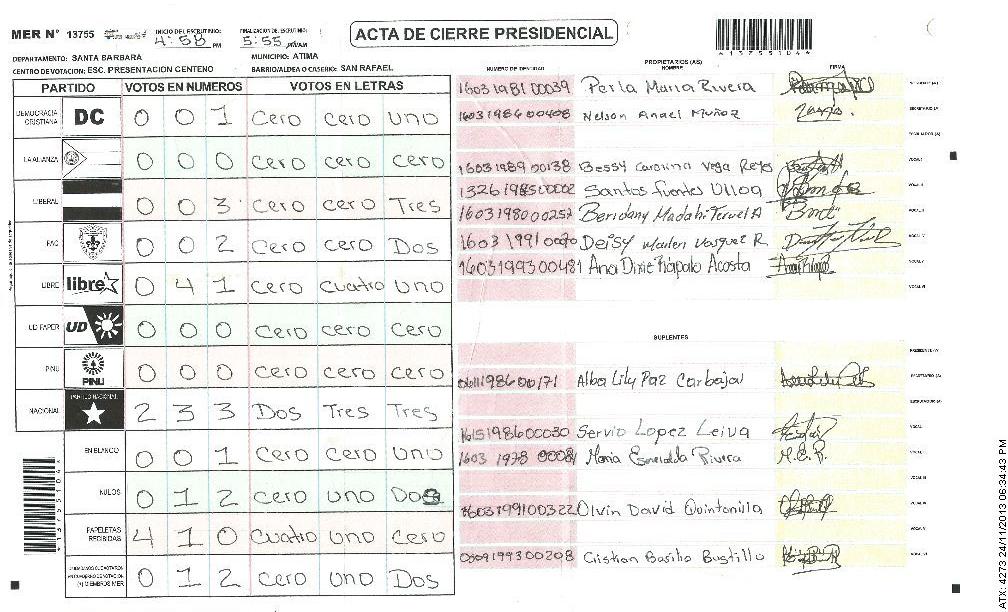 ACTA DE CIERRE PRESIDENCIAL
MER N° 13755 INICIO DEL ESCRUTINIO: 4:58 PM FINALIZACION DE ESCRUTINIO: 5:55 PM
DEPARTAMENTO: SANTA BARBARA MUNICIPIO: ATIMA
CENTRO DE VOTACION: ESC. PRESENTACION CENTENO BARRIO/ALDEA O CASERIO: SAN RAFAEL
PARTIDO VOTOS EN NUMEROS VOTOS EN LETRAS
DEMOCRACIA CRISTIANA DC 0 0 1 Cero cero uno
LA ALIANZA 0 0 0 cero cero cero
LIBERAL 0 0 3 cero cero Tres
PAC 0 0 2 cero cero Dos
LIBRE libre 0 4 1 cero cuatro uno
UD FAPER UD 0 0 0 cero cero cero
PINU PINU 0 0 0 cero cero cero
NACIONAL PARTIDO NACIONAL 2 3 3 Dos Tres Tres
EN BLANCO 0 0 1 cero cero uno
NULOS 0 1 2 cero uno Dos
PAPELETAS RECIBIDAS 4 1 0 cuatro uno cero
0 1 2 cero uno Dos
PROPIETARIOS (AS)
NUMERO DE IDENTIDAD NOMBRE FIRMA
1603198100039 Perla Maria Rivera
1603198600408 Nelson Anael Muñoz
1603198900138 Bessy Carolina Vega Reyes
1326198500002 Santos fuentes Ulloa
1603198000257
Deisy Marlen Vasquez R
1603199300481 Ana Dixie Rapalo Acosta
SUPLENTES
Alba Lily Paz Carbajal
1615198600030 Servio Lopez Leiva
Maria Esmeralda Rivera M.E.R.
1603199100322 Olvin David Quintanilla
0509199300208 Cistian Basilio Bustillo
ATX: 4273 24/11/2013 06:34:43 PM